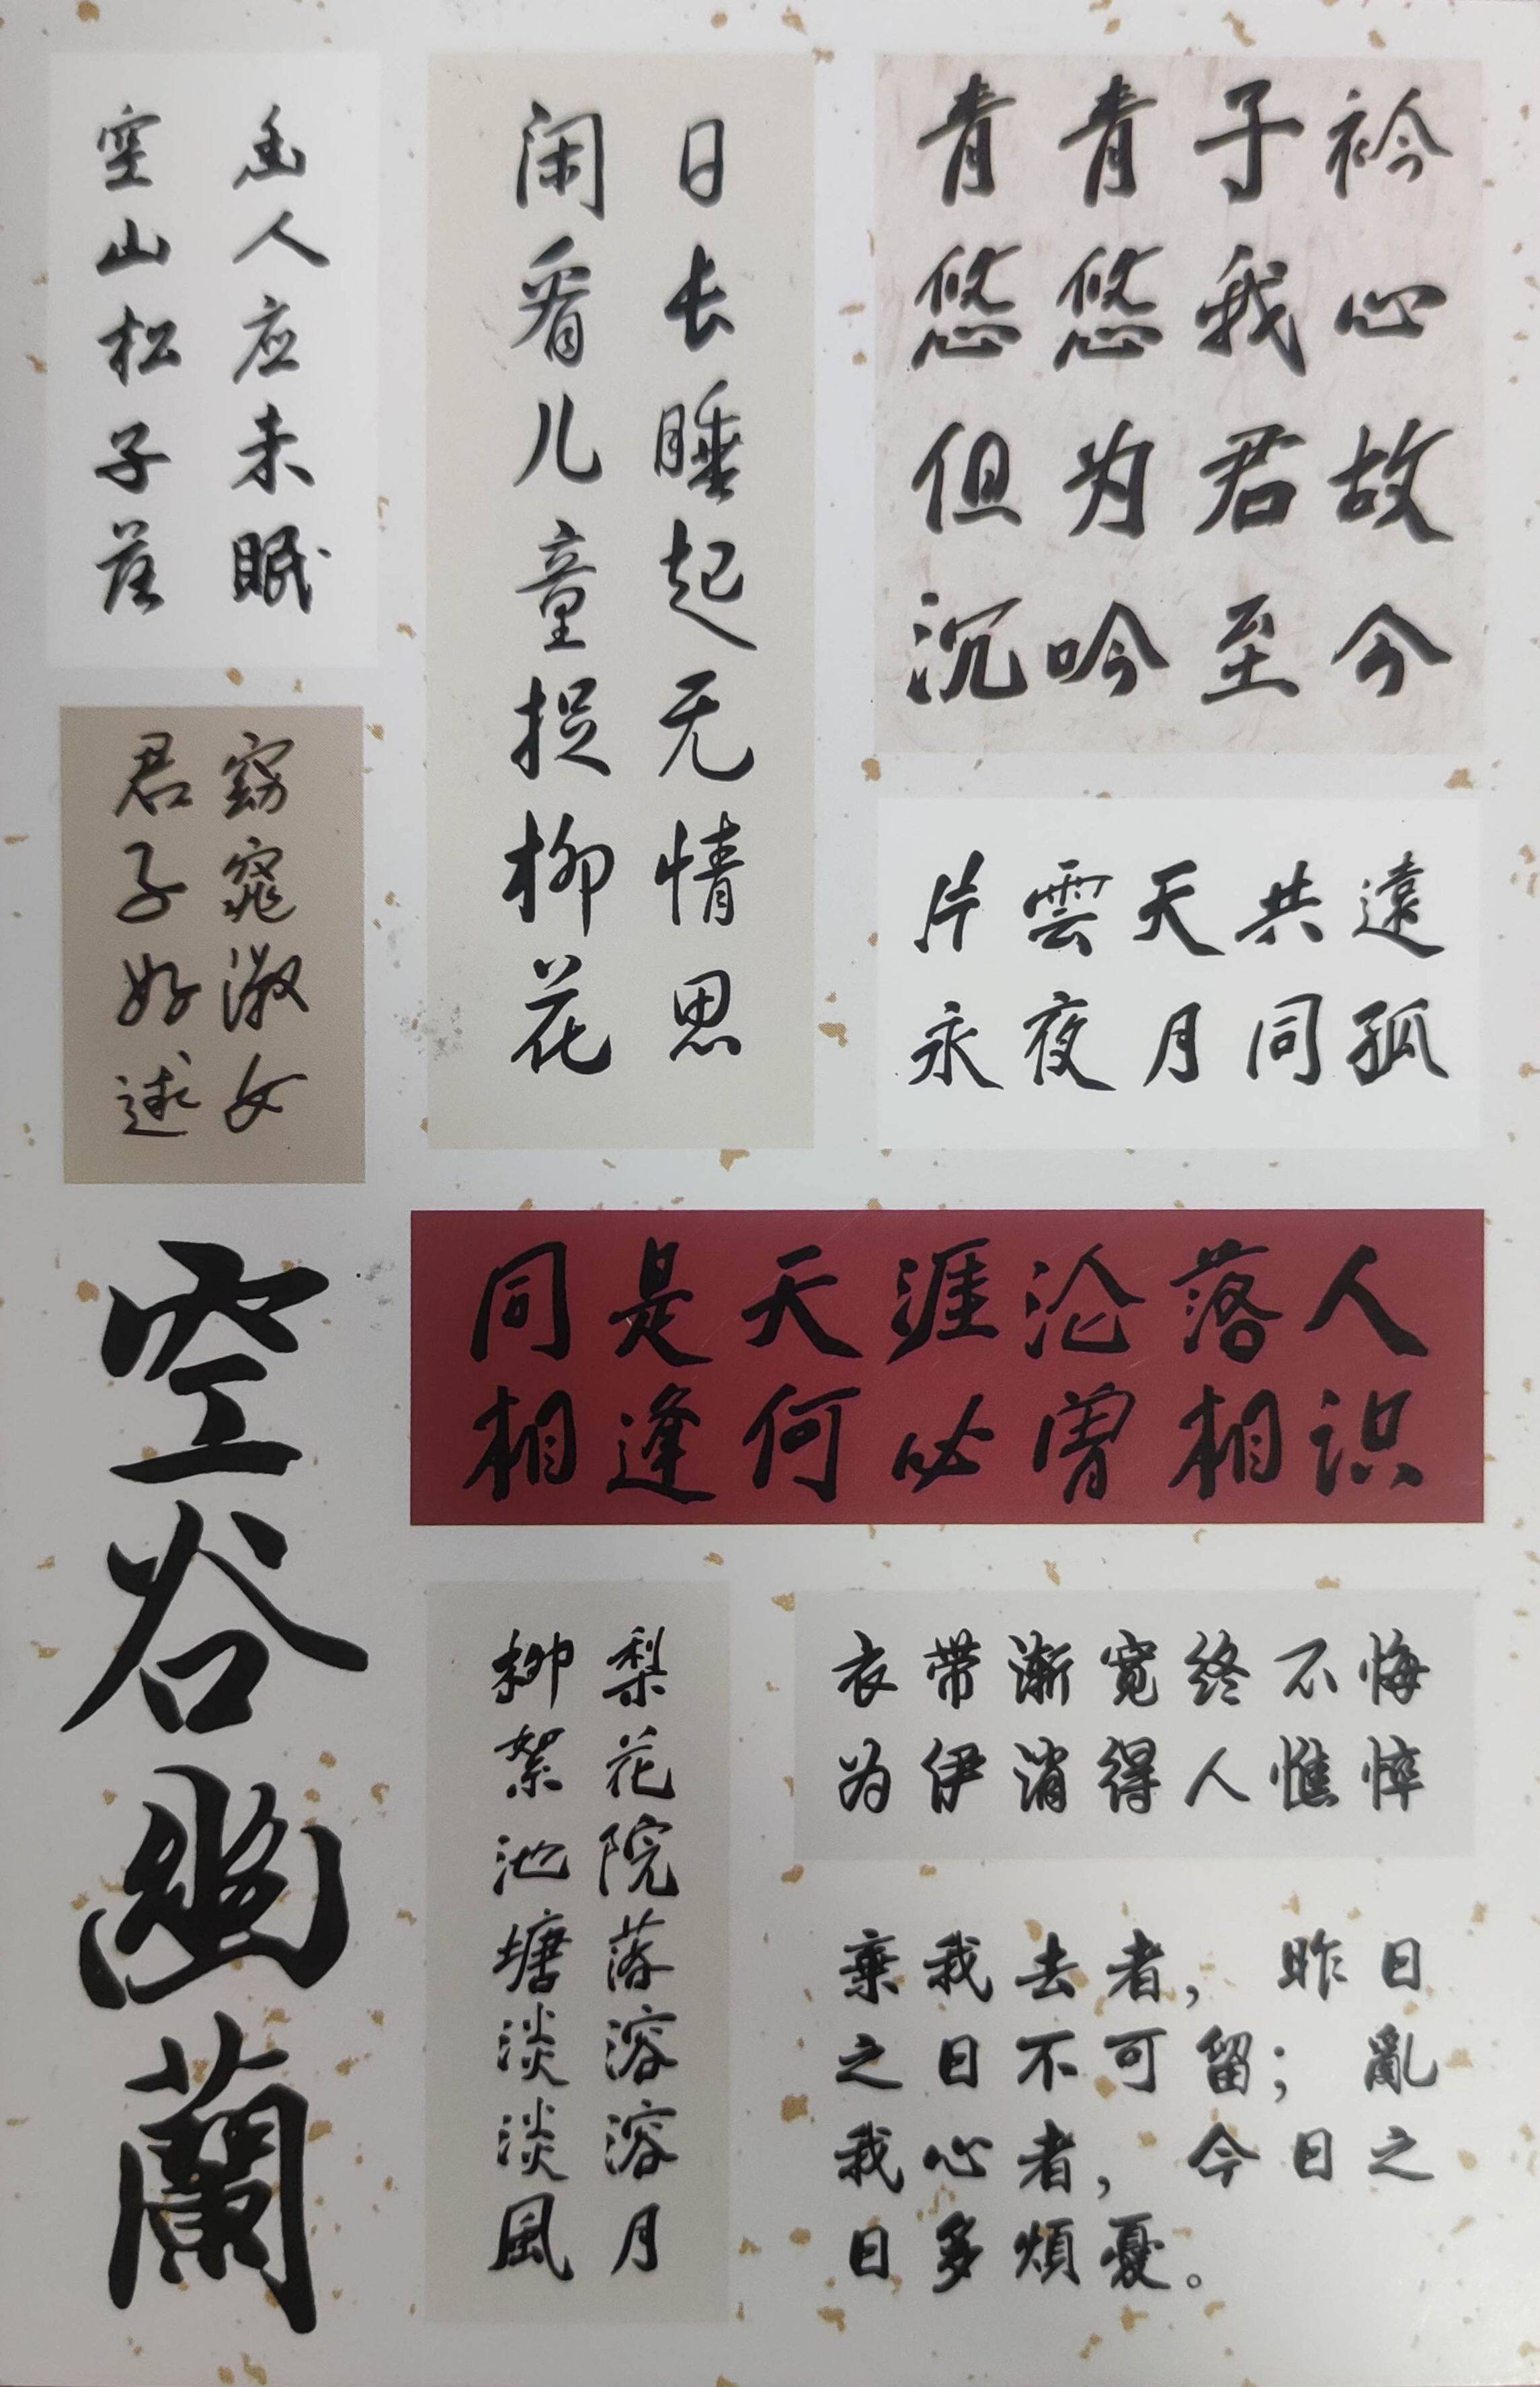 空山松子落
幽人应未眠
日长睡起无情思
闲看儿童捉柳花
青青子衿
悠悠我心
但为君故
沉吟至今
窈窕淑女
君子好逑
片雲天共遠
永夜月同孤
同是天涯沦落人
相逢何必曾相识
空谷幽蘭
梨花院落溶溶月
柳絮池塘淡淡風
衣带渐宽终不悔
为伊消得人憔悴
棄我去者，昨日
之日不可留；亂
我心者，今日之
日多煩憂。